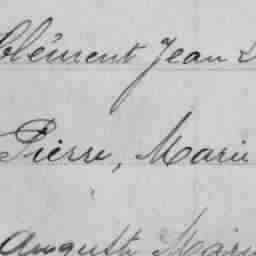 Clément Jean
Pierre, Marie
Auguste Marie